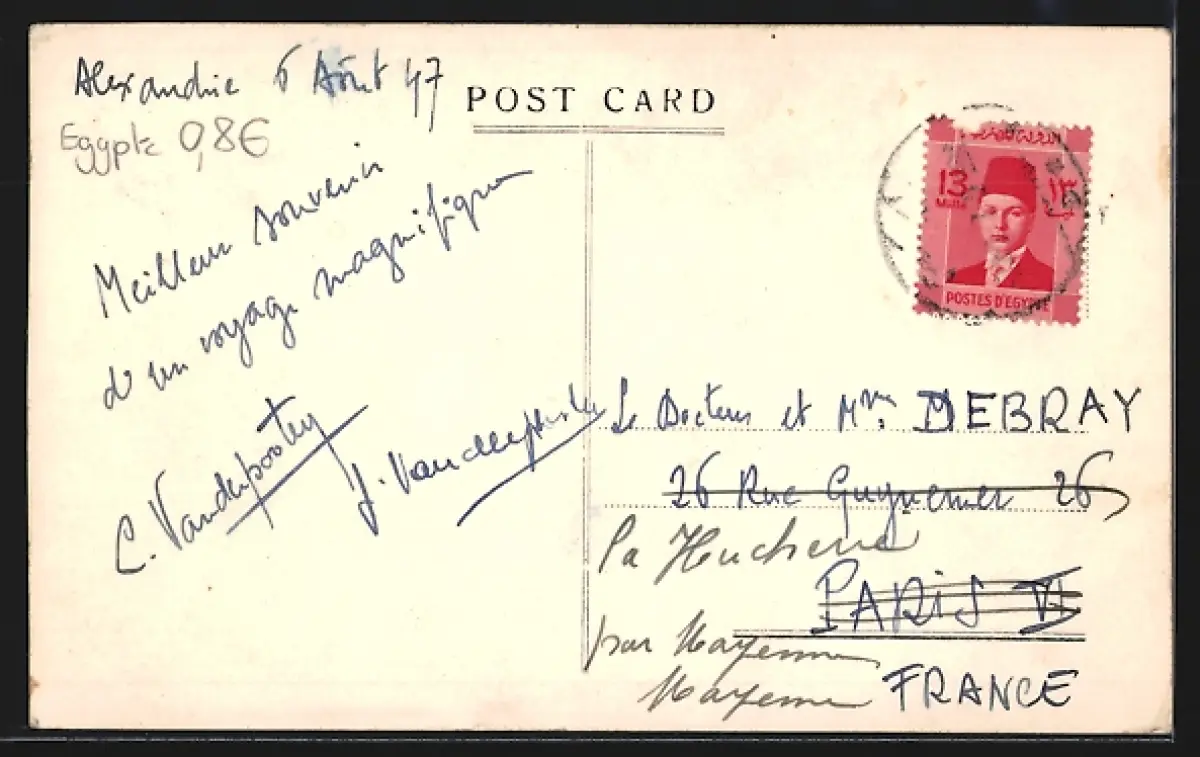 Alexandrie 6 Août 47
Egypte 0,8€
POST CARD
Meilleur souvenir
d'un voyage magnifique
C. Vanderpooten
J. Vanderpooten
13
Mills
١٣
POSTES D'EGYPTE
Le Docteur et Mme DEBRAY
26 Rue Guynemer 26
la Hucherie
PARIS VI
par Mayenne
Mayenne
FRANCE